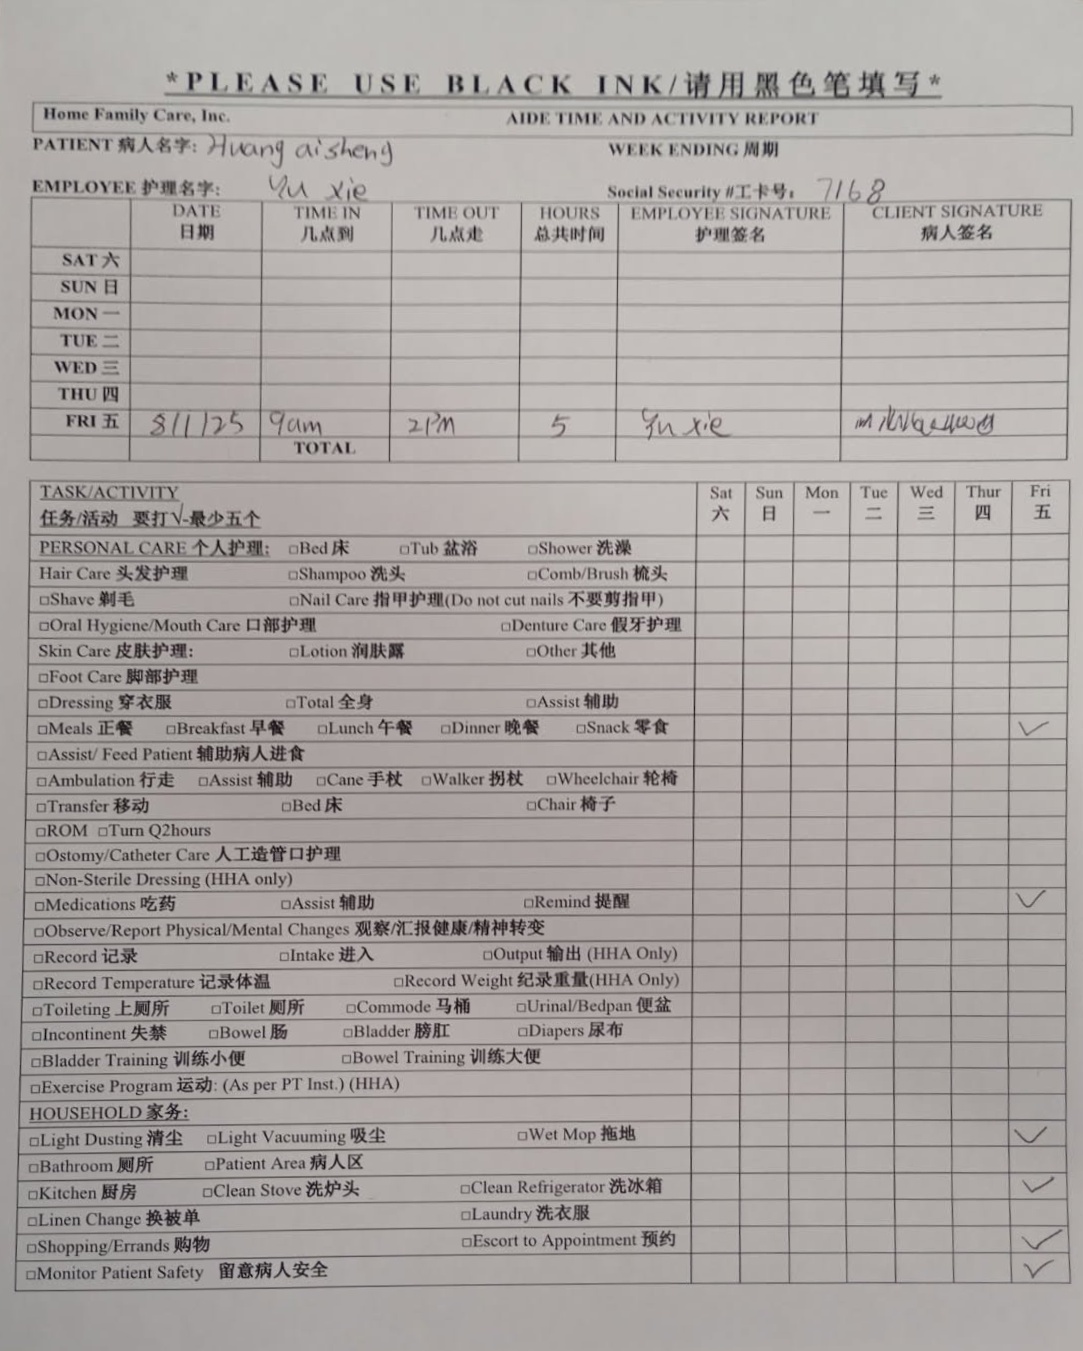 *PLEASE USE BLACK INK/请用黑色笔填写*
Home Family Care, Inc. AIDE TIME AND ACTIVITY REPORT
PATIENT 病人名字: Huang aisheng WEEK ENDING 周期
EMPLOYEE 护理名字: Yu Xie Social Security #工卡号: 7168
DATE TIME IN TIME OUT HOURS EMPLOYEE SIGNATURE CLIENT SIGNATURE
日期 几点到 几点走 总共时间 护理签名 病人签名
SAT 六
SUN 日
MON 一
TUE 二
WED 三
THU 四
FRI 五 8/1/25 9am 2PM 5 Yu xie
TOTAL
TASK/ACTIVITY Sat Sun Mon Tue Wed Thur Fri
任务/活动 要打√-最少五个 六 日 一 二 三 四 五
PERSONAL CARE 个人护理: □Bed 床 □Tub 盆浴 □Shower 洗澡
Hair Care 头发护理 □Shampoo 洗头 □Comb/Brush 梳头
□Shave 剃毛 □Nail Care 指甲护理(Do not cut nails 不要剪指甲)
□Oral Hygiene/Mouth Care 口部护理 □Denture Care 假牙护理
Skin Care 皮肤护理: □Lotion 润肤露 □Other 其他
□Foot Care 脚部护理
□Dressing 穿衣服 □Total 全身 □Assist 辅助
□Meals 正餐 □Breakfast 早餐 □Lunch 午餐 □Dinner 晚餐 □Snack 零食 ✓
□Assist/ Feed Patient 辅助病人进食
□Ambulation 行走 □Assist 辅助 □Cane 手杖 □Walker 拐杖 □Wheelchair 轮椅
□Transfer 移动 □Bed 床 □Chair 椅子
□ROM □Turn Q2hours
□Ostomy/Catheter Care 人工造管口护理
□Non-Sterile Dressing (HHA only)
□Medications 吃药 □Assist 辅助 □Remind 提醒 ✓
□Observe/Report Physical/Mental Changes 观察/汇报健康/精神转变
□Record 记录 □Intake 进入 □Output 输出 (HHA Only)
□Record Temperature 记录体温 □Record Weight 纪录重量(HHA Only)
□Toileting 上厕所 □Toilet 厕所 □Commode 马桶 □Urinal/Bedpan 便盆
□Incontinent 失禁 □Bowel 肠 □Bladder 膀肛 □Diapers 尿布
□Bladder Training 训练小便 □Bowel Training 训练大便
□Exercise Program 运动: (As per PT Inst.) (HHA)
HOUSEHOLD 家务:
□Light Dusting 清尘 □Light Vacuuming 吸尘 □Wet Mop 拖地 ✓
□Bathroom 厕所 □Patient Area 病人区
□Kitchen 厨房 □Clean Stove 洗炉头 □Clean Refrigerator 洗冰箱 ✓
□Linen Change 换被单 □Laundry 洗衣服
□Shopping/Errands 购物 □Escort to Appointment 预约 ✓
□Monitor Patient Safety 留意病人安全 ✓